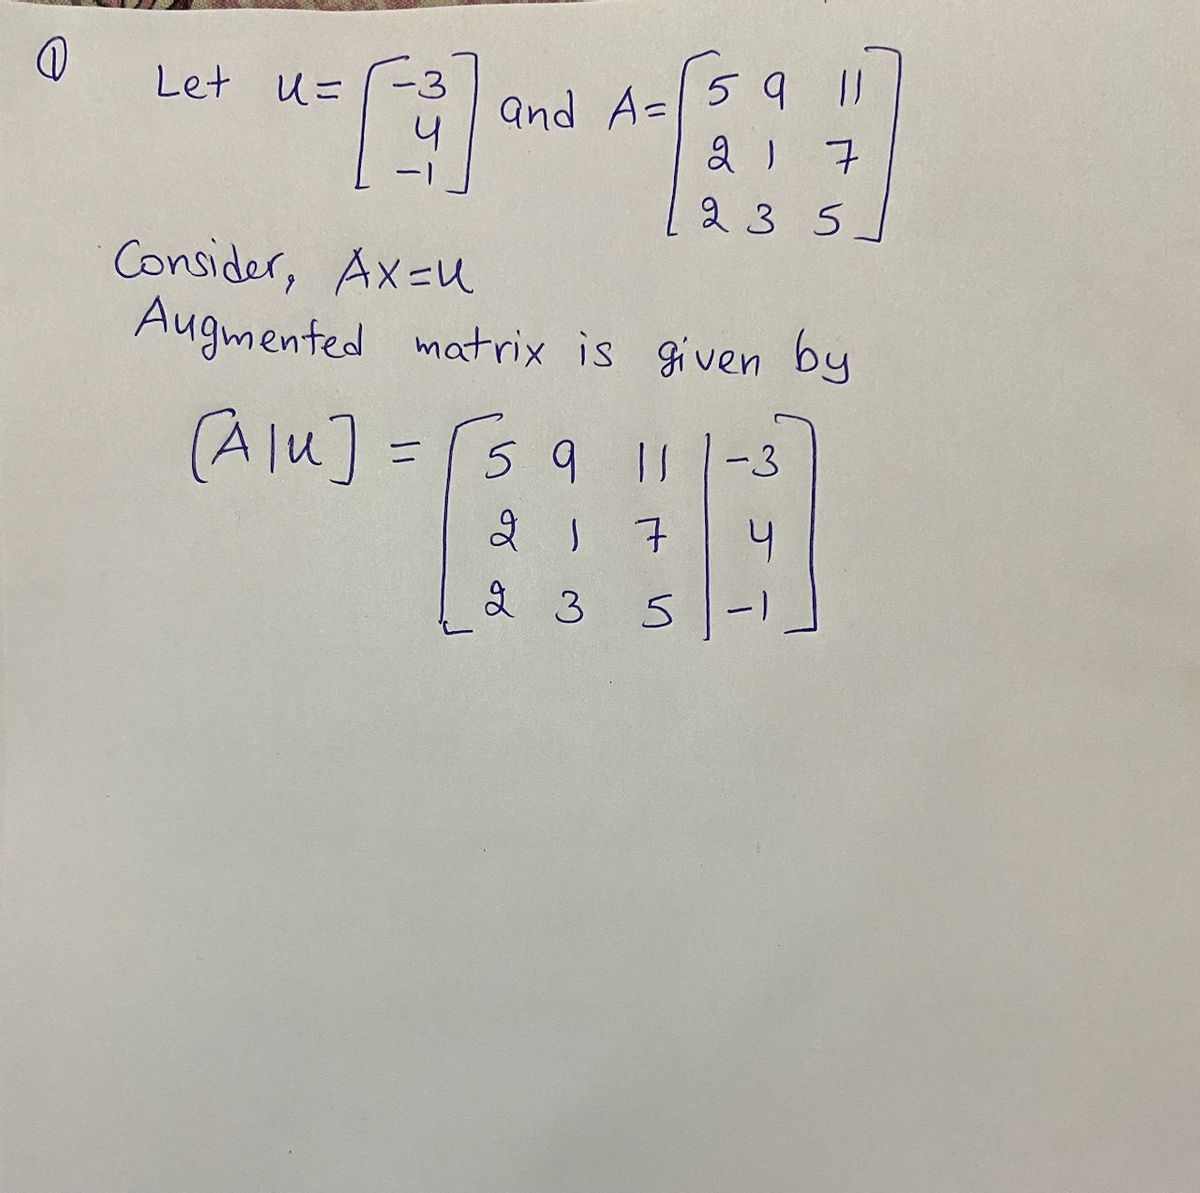 ① Let u = [-3 4 -1] and A = [5 9 11
2 1 7
2 3 5]
Consider, Ax = u
Augmented matrix is given by
[A|u] = [5 9 11 | -3
2 1 7 | 4
2 3 5 | -1]